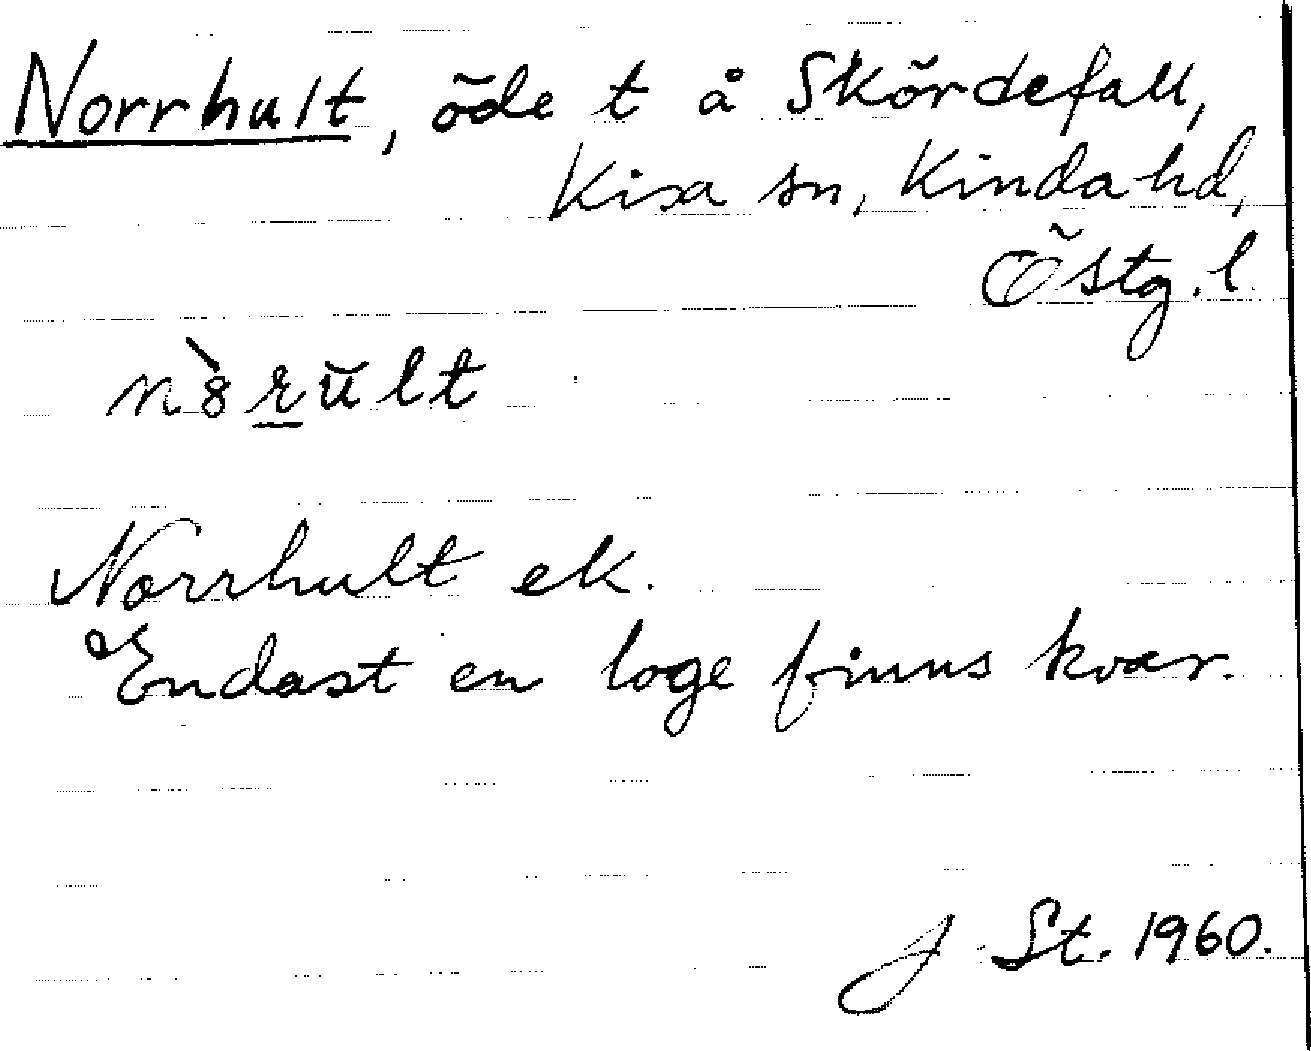 Norrhult, öde t å Skördefall,
Kisa sn, Kinda hd,
Östg. l
Norrhult ek.
Endast en loge finns kvar.
J St. 1960.